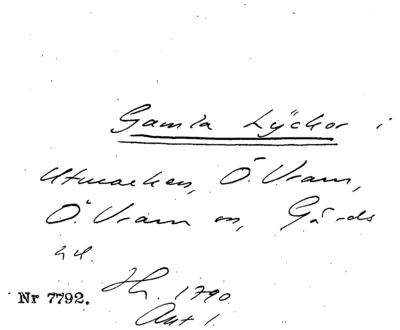 Gamla Lyckor i
Utmarken, Ö. Vram,
Ö. Vram sn, Gärds
hd.
Nr 7792.
1790
Akt 1.